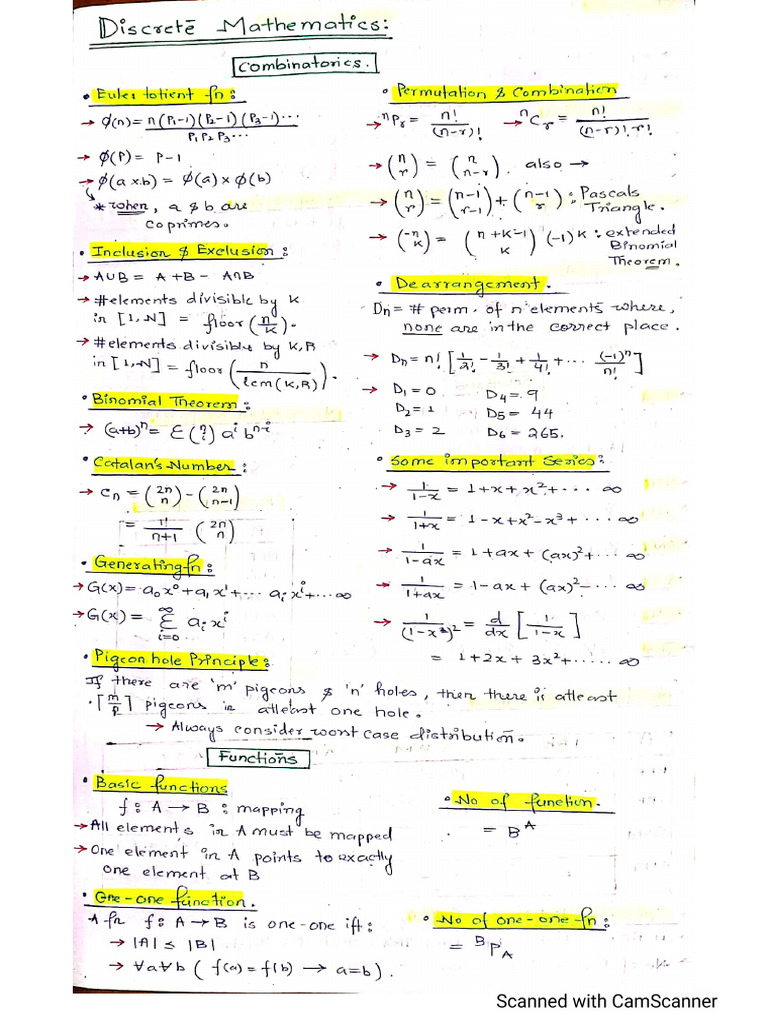 Discrete Mathematics:
Combinatorics.
• Euler totient fn:
→ φ(n) = n(P₁-1)(P₂-1)(P₃-1)... / P₁P₂P₃...
→ φ(P) = P-1
→ φ(a×b) = φ(a) × φ(b)
* when, a & b are
coprimes.
• Inclusion & Exclusion:
→ A∪B = A + B - A∩B
→ #elements divisible by K
in [1,N] = floor(n/K).
→ #elements divisible by K,R
in [1,N] = floor(n / lcm(K,R)).
• Binomial Theorem:
→ (a+b)ⁿ = Σ (n i) aⁱ bⁿ⁻ⁱ
• Catalan's Number:
→ Cn = (2n n) - (2n n-1)
= 1/n+1 (2n n)
• Generating fn:
→ G(x) = a₀x⁰ + a₁x¹ + ... aᵢxⁱ + ... ∞
→ G(x) = Σ_{i=0}^{∞} aᵢxⁱ
• Permutation & Combination
→ ⁿPr = n! / (n-r)! → ⁿCr = n! / (n-r)! r!
→ (n r) = (n n-r). also →
→ (n r) = (n-1 r-1) + (n-1 r) : Pascals
Triangle.
→ (-n K) = (n+K-1 K) (-1)ᴷ : extended
Binomial
Theorem.
• Dearrangement.
Dn = # perm. of n elements where,
none are in the correct place.
→ Dn = n! [1/2! - 1/3! + 1/4! + ... (-1)ⁿ/n!]
→ D₁ = 0 D₄ = 9
D₂ = 1 D₅ = 44
D₃ = 2 D₆ = 265.
• Some important Series:
→ 1/1-x = 1+x+x²+... ∞
→ 1/1+x = 1-x+x²-x³+... ∞
→ 1/1-ax = 1+ax+(ax)²+... ∞
→ 1/1+ax = 1-ax+(ax)²-... ∞
→ 1/(1-x)² = d/dx [1/1-x]
= 1+2x+3x²+..... ∞
• Pigeon hole Principle:
If there are 'm' pigeons & 'n' holes, then there is atleast
⌈m/n⌉ pigeons in atleast one hole.
→ Always consider worst case distribution.
Functions
• Basic functions
f: A → B : mapping
→ All elements in A must be mapped
→ One element in A points to exactly
one element at B
• No of function.
= Bᴬ
• One-one function.
A fn f: A → B is one-one ift:
→ |A| ≤ |B|
→ ∀a∀b (f(a) = f(b) → a=b).
• No of one-one-fn:
= ᴮP_A
Scanned with CamScanner